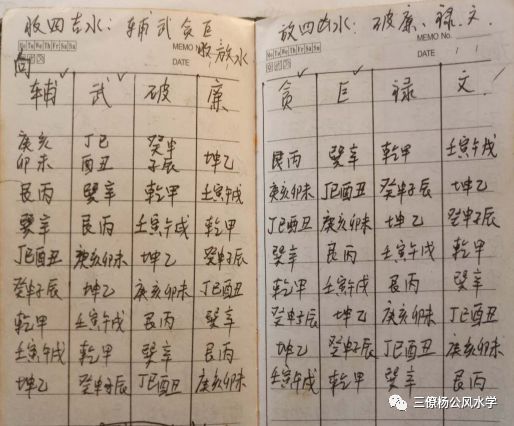 收四吉水：辅武贪巨
Mo Tu We Th Fr Sa Su
MEMO No.
收放水
DATE
向
辅 武 破 廉
庚亥 丁巳 癸申
卯未 酉丑 子辰 坤乙
艮丙 巽辛 乾甲 壬寅午戌
巽辛 艮丙 壬寅午戌 乾甲
丁巳酉丑 庚亥卯未 坤乙 癸申子辰
癸申子辰 坤乙 庚亥卯未 丁巳酉丑
乾甲 壬寅午戌 艮丙 巽辛
壬寅午戌 乾甲 巽辛 艮丙
坤乙 癸申子辰 丁巳酉丑 庚亥卯未
放四凶水：破廉、禄、文
Mo Tu We Th Fr Sa Su
MEMO No.
DATE
贪 巨 禄 文
艮丙 巽辛 乾甲 壬寅午戌
庚亥卯未 丁巳酉丑 癸申子辰 坤乙
丁巳酉丑 庚亥卯未 坤乙 癸申子辰
巽辛 艮丙 壬寅午戌 乾甲
乾甲 壬寅午戌 艮丙 巽辛
癸申子辰 坤乙 庚亥卯未 丁巳酉丑
坤乙 癸申子辰 丁巳酉丑 庚亥卯未
壬寅午戌 乾甲 巽辛 艮丙
三僚杨公风水学